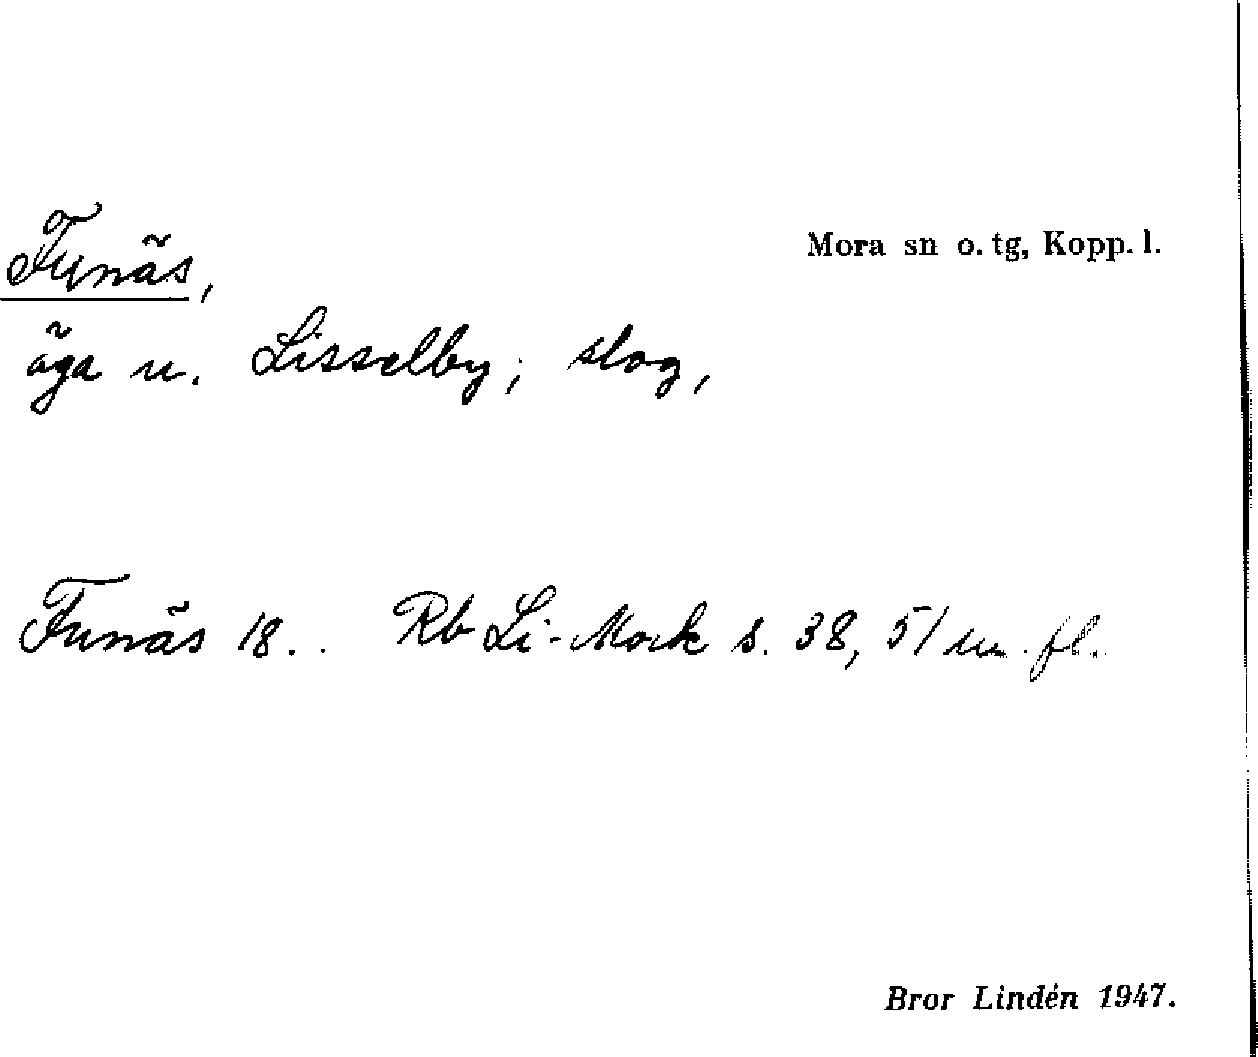 Funäs,
Mora sn o. tg, Kopp. l.
äga u. Lisselby; slog,
Funäs 18.. Rb Li-Mork s. 38, 51 m. fl.
Bror Lindén 1947.